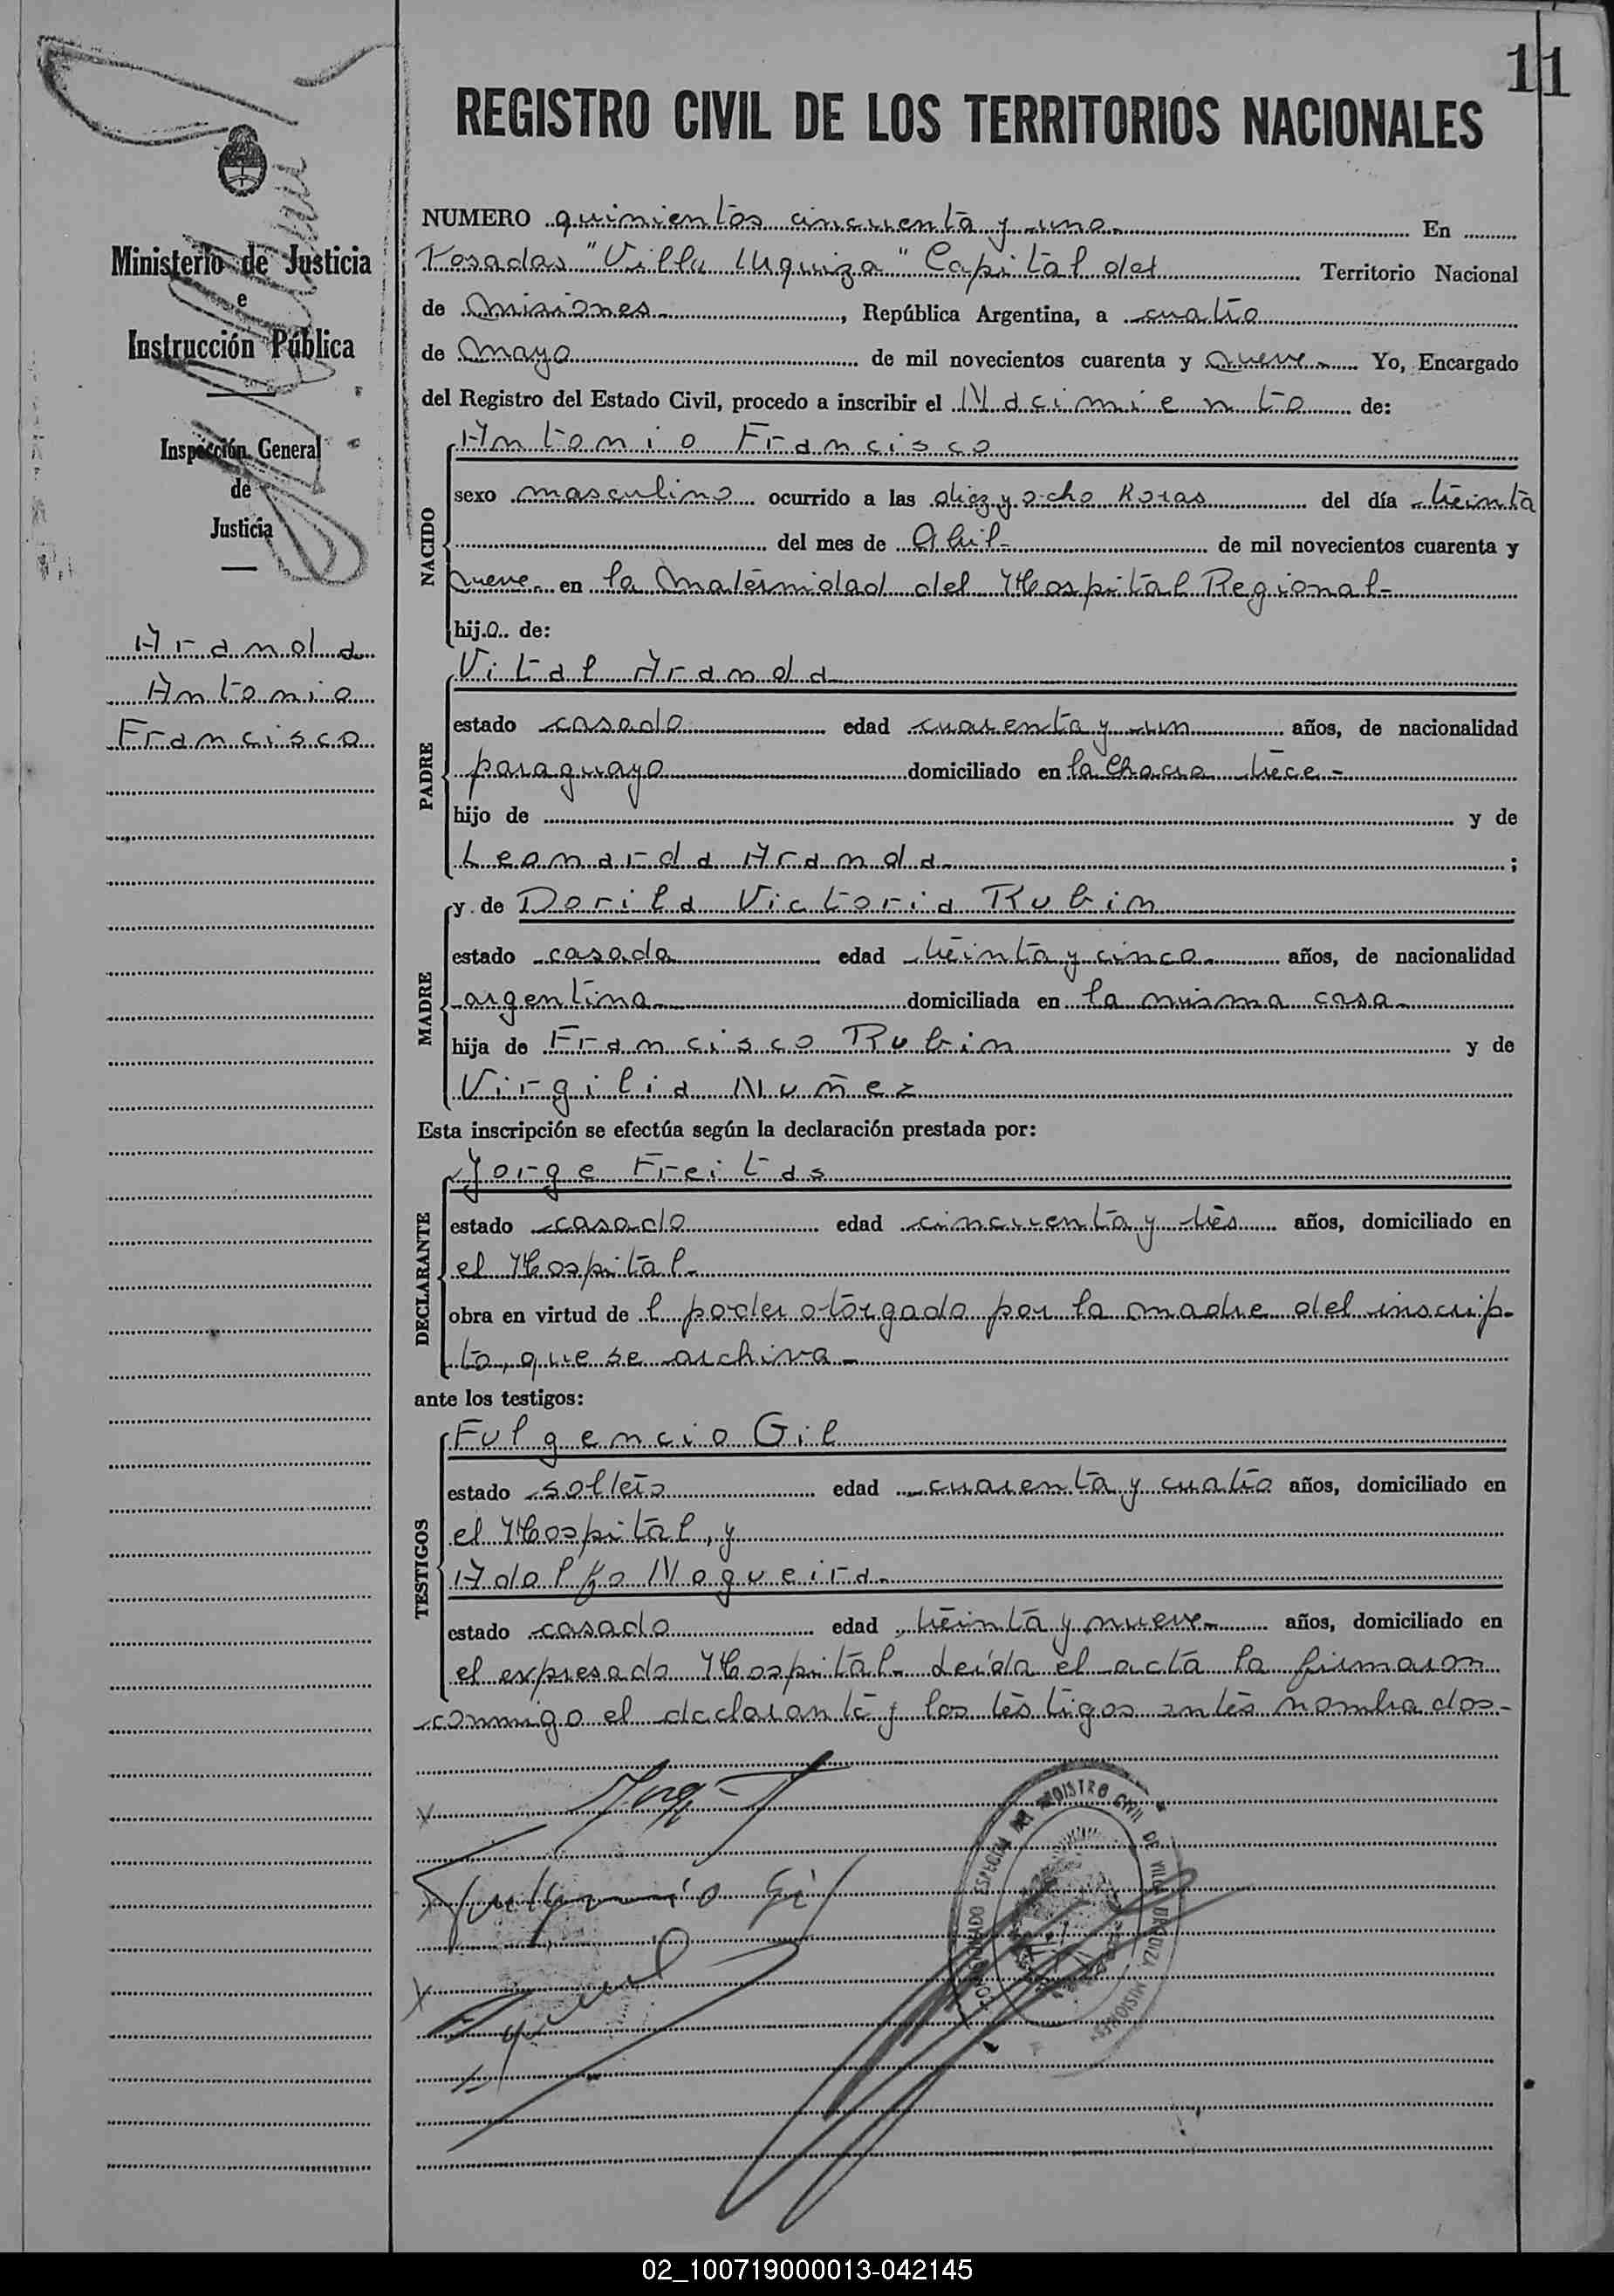 11
REGISTRO CIVIL DE LOS TERRITORIOS NACIONALES
Ministerio de Justicia
e
Instrucción Pública
Inspección General
de
Justicia
Aranda
Antonio
Francisco
NUMERO quinientos cincuenta y uno - En
Posadas "Villa Urquiza" Capital del Territorio Nacional
de Misiones - , República Argentina, a cuatro
de Mayo de mil novecientos cuarenta y nueve - Yo, Encargado
del Registro del Estado Civil, procedo a inscribir el Nacimiento de:
NACIDO
Antonio Francisco
sexo masculino ocurrido a las diez y ocho horas del día treinta
del mes de Abril - de mil novecientos cuarenta y
nueve - en la Maternidad del Hospital Regional -
hijo de:
PADRE
Vital Aranda
estado casado edad cuarenta y un años, de nacionalidad
paraguayo domiciliado en la Chacra trece -
hijo de y de
Leonarda Aranda - ;
MADRE
y de Dorila Victoria Rubin
estado casada edad treinta y cinco - años, de nacionalidad
argentina - domiciliada en la misma casa -
hija de Francisco Rubin y de
Virgilia Nuñez
Esta inscripción se efectúa según la declaración prestada por:
DECLARANTE
Jorge Freitas
estado casado edad cincuenta y tres años, domiciliado en
el Hospital -
obra en virtud de l poder otorgado por la madre del inscrip-
to, que se archiva -
ante los testigos:
TESTIGOS
Fulgencio Gil
estado soltero edad cuarenta y cuatro años, domiciliado en
el Hospital, y
Adolfo Nogueira -
estado casado edad treinta y nueve - años, domiciliado en
el expresado Hospital - Leída el acta la firmaron
conmigo el declarante y los testigos antes nombrados -
Fulgencio Gil
REGISTRO CIVIL DE VILLA URQUIZA MISIONES
02_100719000013-042145